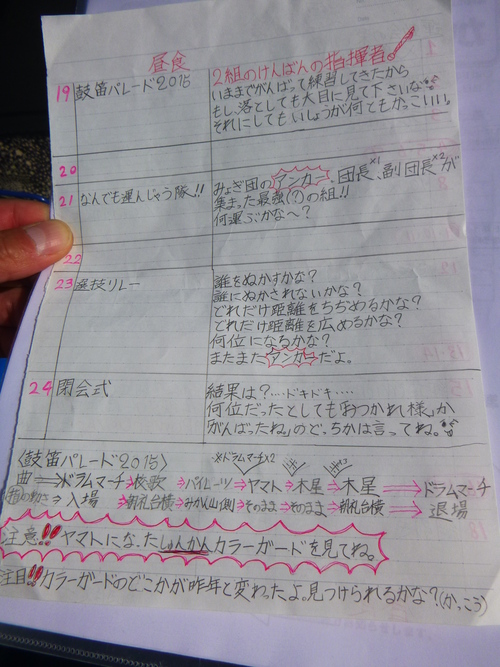 昼食
19 鼓笛パレード2015
2組のけんばんの指揮者
いままでがんばって練習してきたから
もし、落としても大目に見て下さいな
それにしてもいしょうが何ともかっこいい!!。
20
21 なんでも運んじゃう隊!!
みょぎ団のアンカー、団長×1、副団長×2が
集まった最強(?)の組!!
何運ぶかな~?
22
23 選抜リレー
誰をぬかすかな?
誰にぬかされないかな?
どれだけ距離をちぢめるかな?
どれだけ距離を広めるかな?
何位になるかな?
またまたアンカーだよ。
24 閉会式
結果は?‥‥ドキドキ‥‥
何位だったとしても「おつかれ様」か
「がんばったね」のど、ちかは言ってね。
〈鼓笛パレード2015〉
※ドラムマーチ×2
曲⇒ドラムマーチ→校歌→パイレーツ→ヤマト→木星→木星→ドラムマーチ
動き⇒入場→朝礼台横→みかん山側→そのまま→そのまま→朝礼台横→退場
注意!!ヤマトになったしゅんかんカラーガードを見てね。
注目!!カラーガードのどこかが昨年と変わったよ。見つけられるかな?(かっこう)